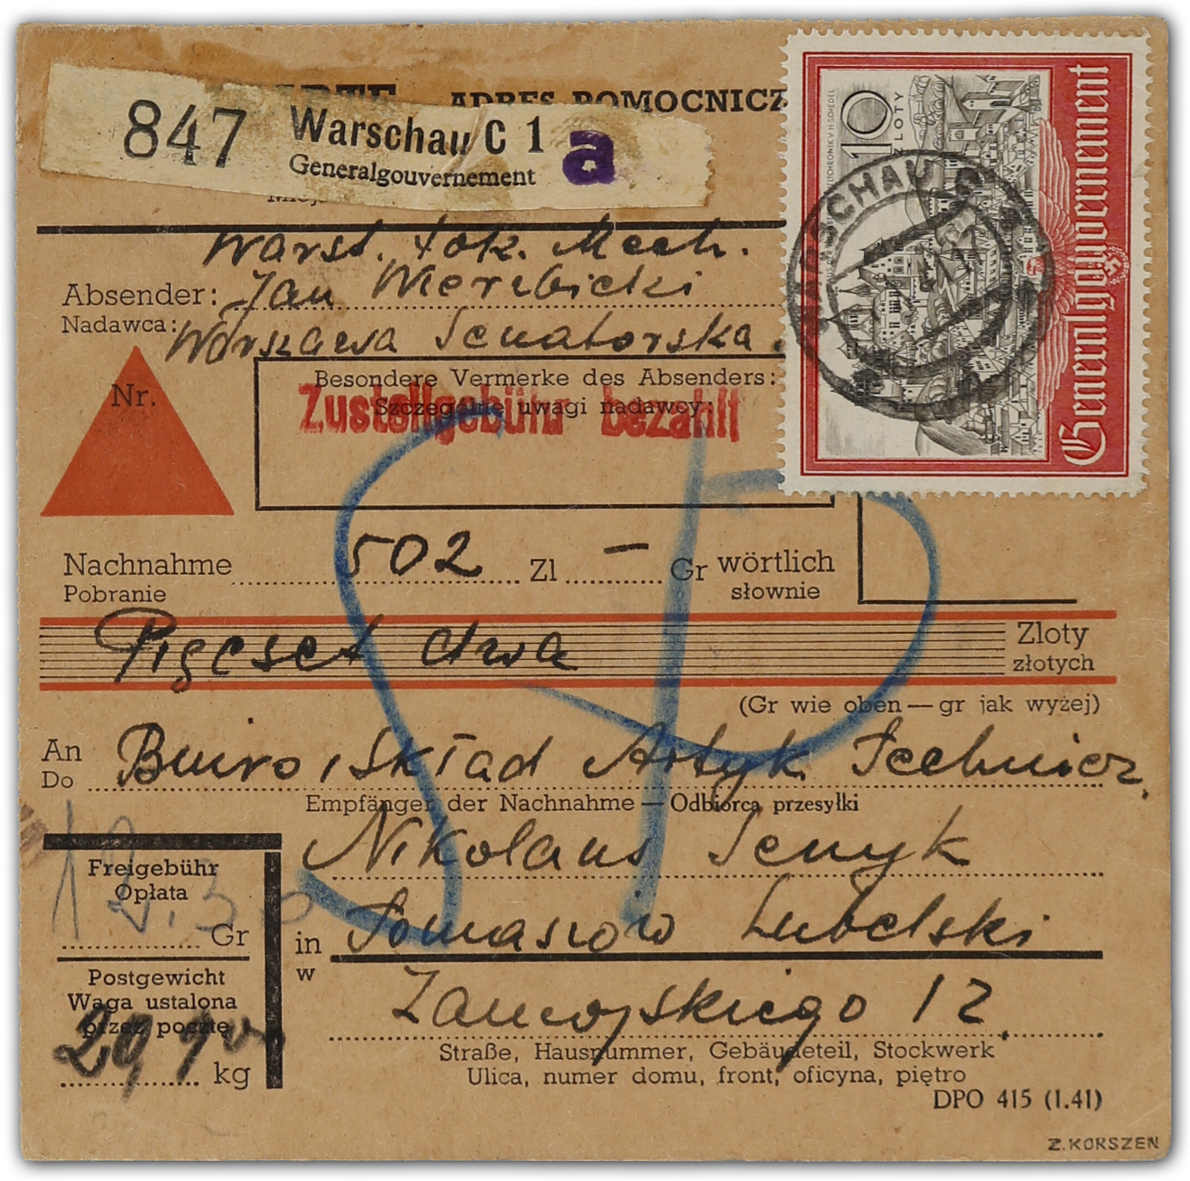 ADRES POMOCNICZ
847 Warschau C 1 a
Generalgouvernement
10
ZŁOTY
Generalgouvernement
WARSCHAU C
Warst. tok. Mech.
Absender: Jan Wierzbicki
Nadawca: Warszawa Senatorska
Nr.
Besondere Vermerke des Absenders:
Szczególne uwagi nadawcy:
Zustellgebühr bezahlt
Nachnahme 502 Zl — Gr wörtlich
Pobranie słownie
Pięćset dwa Zloty
złotych
(Gr wie oben — gr jak wyżej)
An Biuro, Skład Artyk. Technicz.
Do
Empfänger der Nachnahme — Odbiorca przesyłki
Nikolaus Senyk
Freigebühr
Opłata
Gr
in Tomaszów Lubelski
w
Postgewicht
Waga ustalona
przez pocztę
kg
Zamojskiego 12.
Straße, Hausnummer, Gebäudeteil, Stockwerk
Ulica, numer domu, front, oficyna, piętro
DPO 415 (1.41)
Z. KORSZEŃ